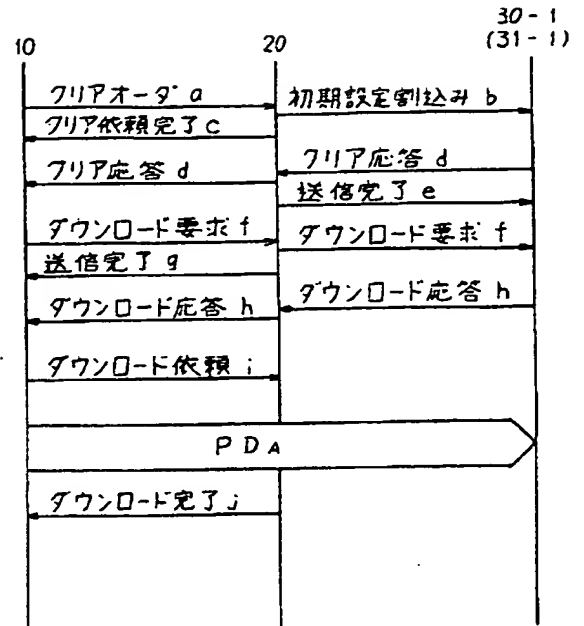 10
20
30-1
(31-1)
クリアオーダ a
初期設定割込み b
クリア依頼完了 c
クリア応答 d
クリア応答 d
送信完了 e
ダウンロード要求 f
ダウンロード要求 f
送信完了 g
ダウンロード応答 h
ダウンロード応答 h
ダウンロード依頼 i
PDA
ダウンロード完了 j